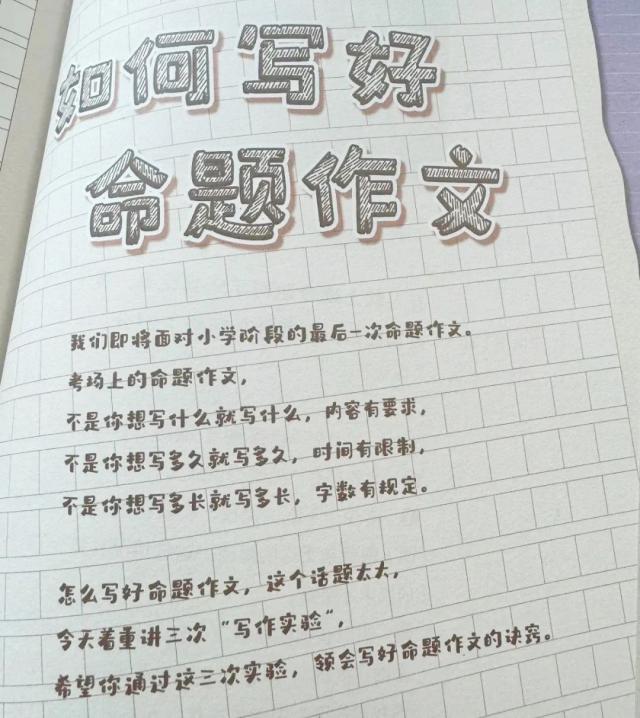 如何写好
命题作文
我们即将面对小学阶段的最后一次命题作文。
考场上的命题作文，
不是你想写什么就写什么，内容有要求，
不是你想写多久就写多久，时间有限制，
不是你想写多长就写多长，字数有规定。
怎么写好命题作文，这个话题太大，
今天着重讲三次“写作实验”，
希望你通过这三次实验，领会写好命题作文的诀窍。